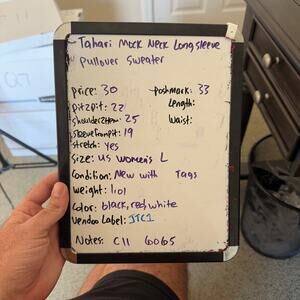 - Tahari Mock Neck Longsleeve
Pullover Sweater
Price: 30
Poshmark: 33
Pit2Pit: 22
Length:
Shoulder2Hem: 25
Waist:
Sleevefrompit: 19
Stretch: Yes
Size: US Women's L
Condition: New with Tags
Weight: 1.01
Color: black, red, white
Vendoo Label: JTC1
Notes: C11 6065